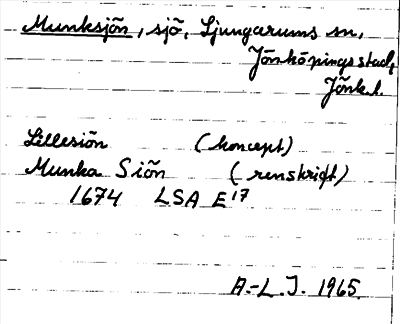 Munksjön, sjö, Ljungarums sn,
Jönköpings stad,
Jönk.l.
Lillesiön (koncept)
Munka Siön (renskrift)
1674 LSA E17
A.-L.J. 1965.